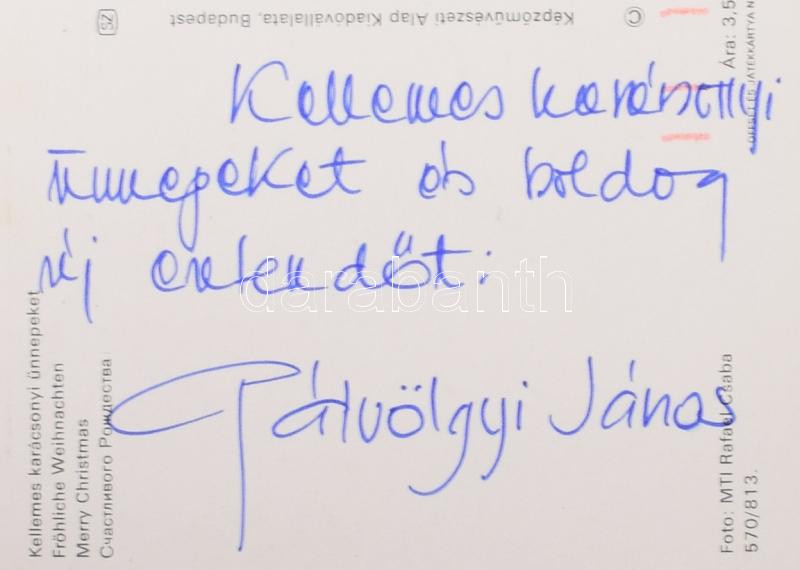 SZ
Képzőművészeti Alap Kiadóvállalata, Budapest
©
Kellemes karácsonyi
ünnepeket és boldog
új esztendőt:
Gálvölgyi János
Kellemes karácsonyi ünnepeket
Fröhliche Weihnachten
Merry Christmas
Счастливого Рождества
Foto: MTI Rafael Csaba
570/813.
Ára: 3,5
OFFSET ÉS JÁTÉKKÁRTYA N
darabanth